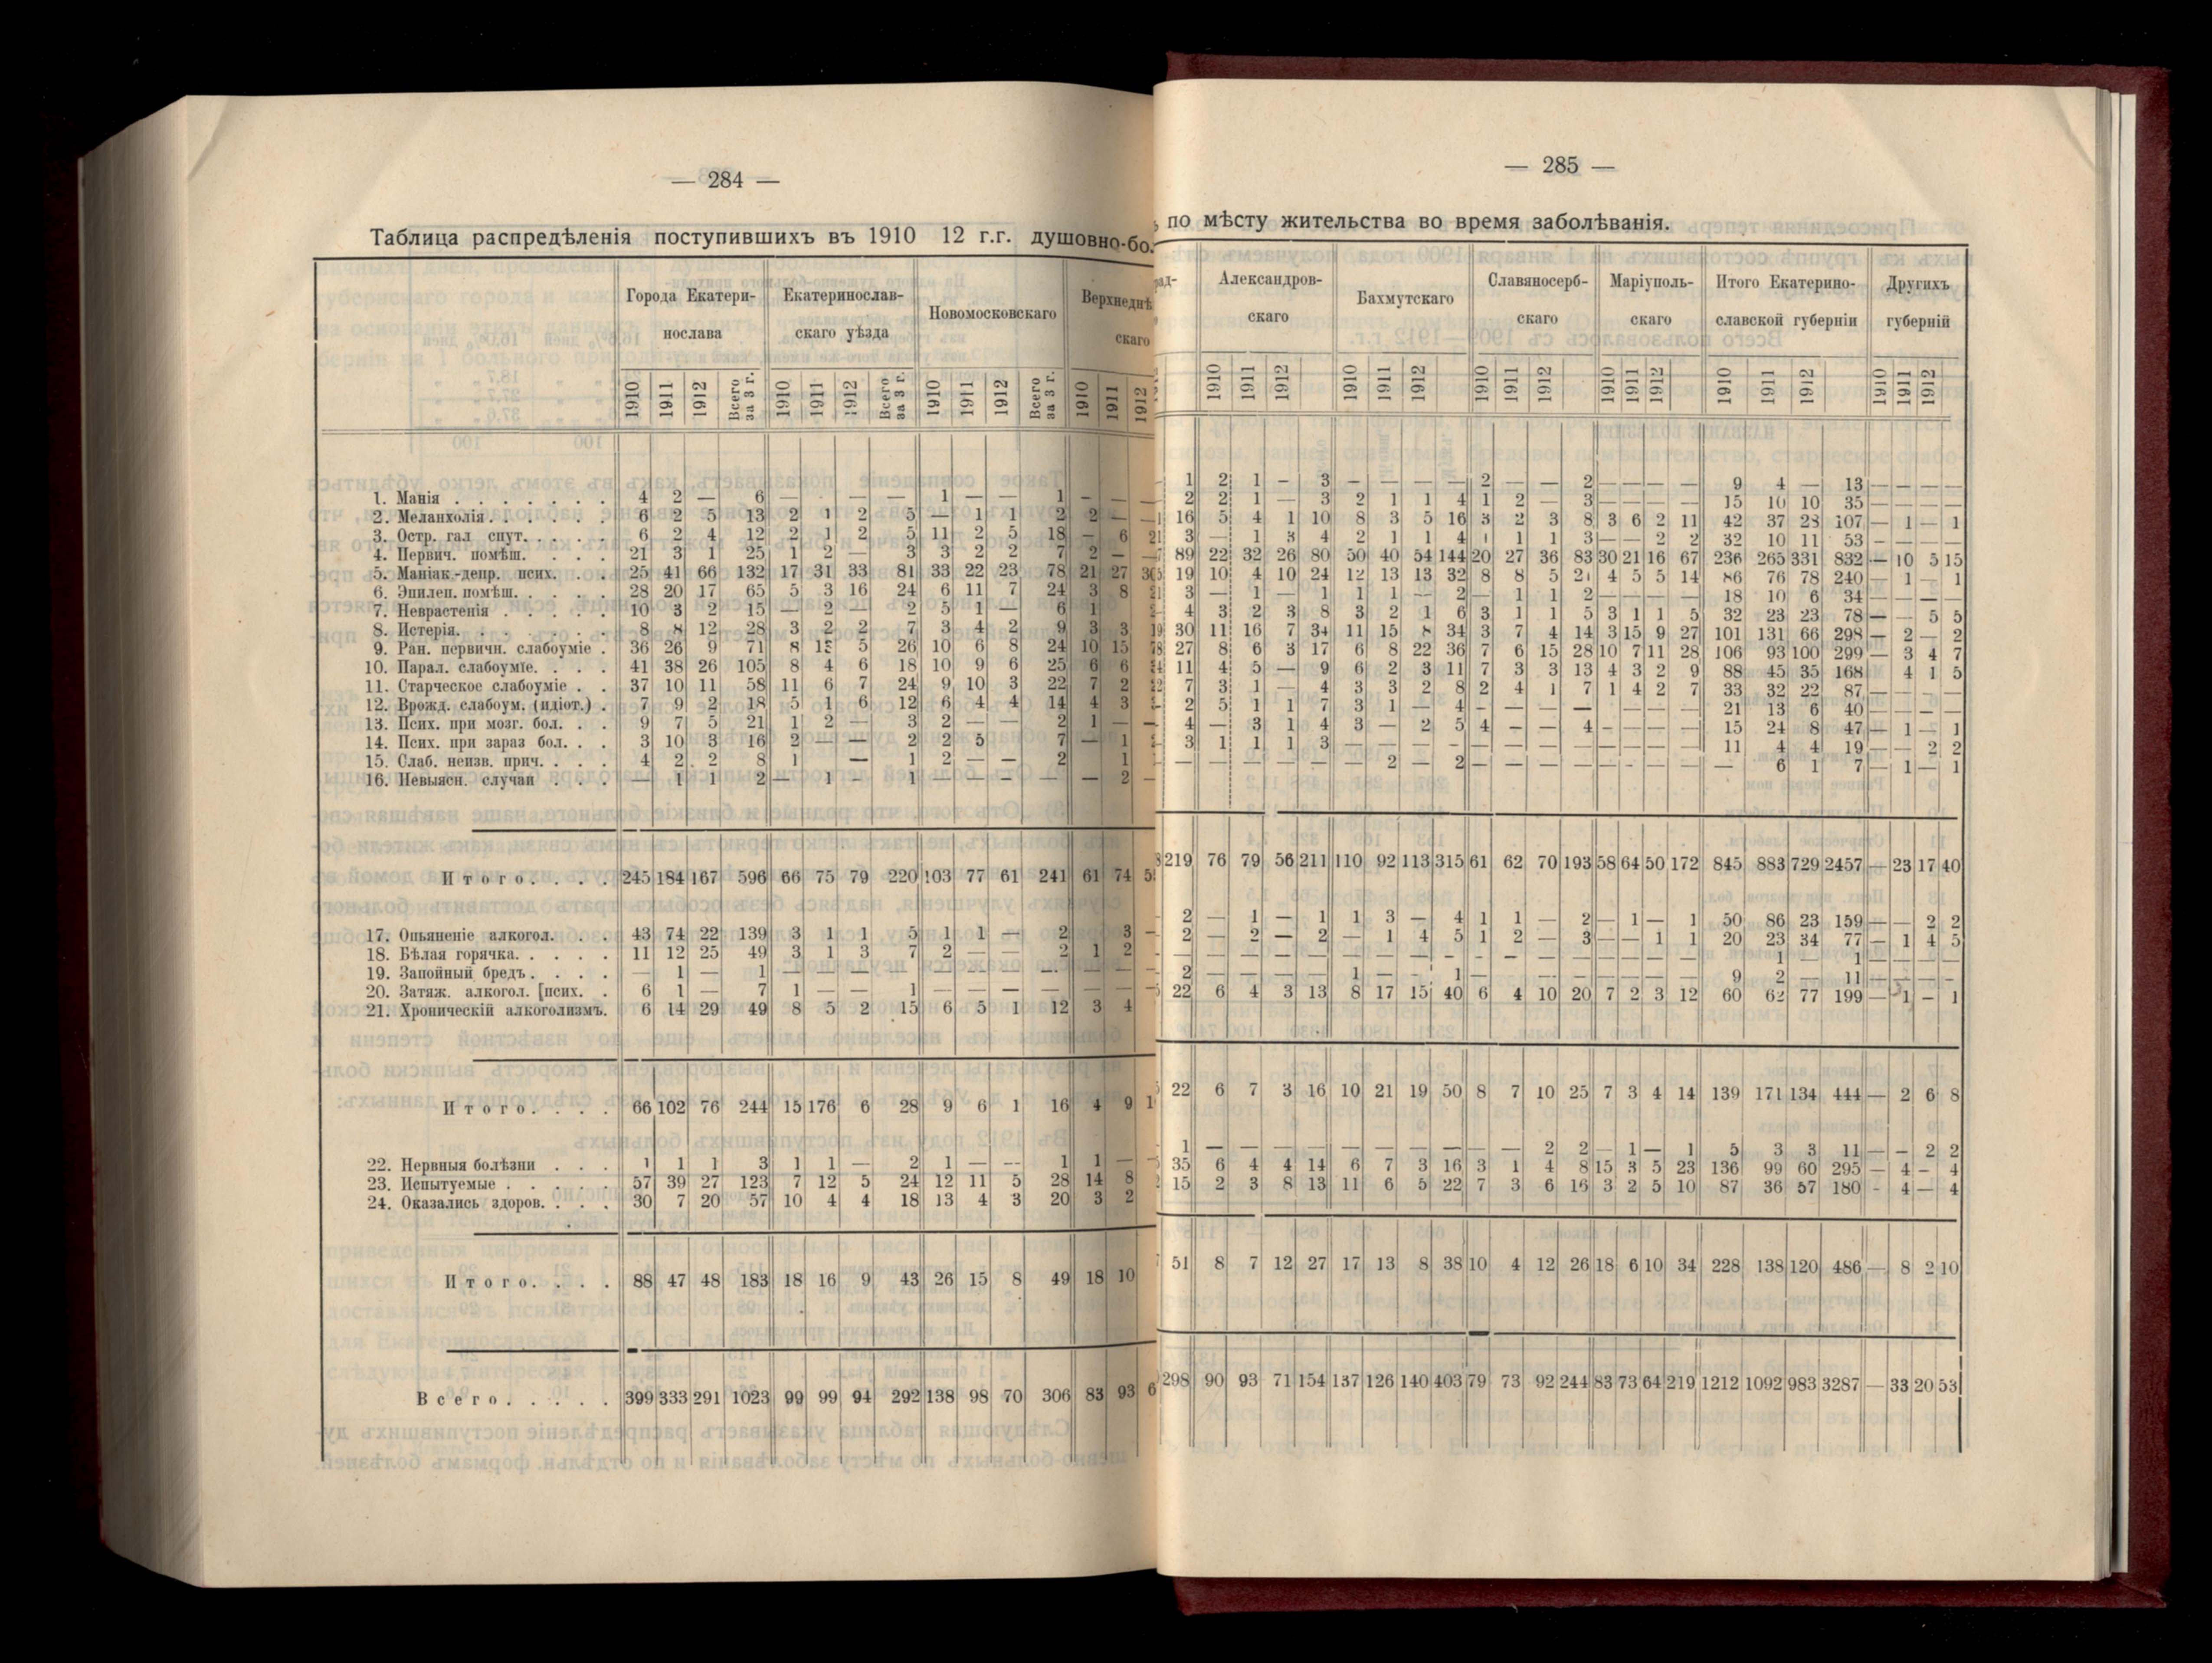 — 284 —
Таблица распредѣленія поступившихъ въ 1910 12 г.г. душовно-бо.
Города Екатери-
нослава
Екатеринослав-
скаго уѣзда
Новомосковскаго
Верхнеднѣ
скаго
1910 1911 1912 Всего за 3 г. 1910 1911 1912 Всего за 3 г. 1910 1911 1912 Всего за 3 г. 1910 1911 1912
1. Манія . . . . . . . 4 2 — 6 — — — 1 — — 1 — — —
2. Меланхолія . . . . . . 6 2 5 13 2 1 2 5 — 1 1 2 2 — —
3. Остр. гал спут. . . . . 6 2 4 12 2 1 2 5 11 2 5 18 — 6
4. Первич. помѣш. . . . . 21 3 1 25 1 2 — 3 3 2 2 7 2 — —
5. Маніак-депр. псих. . . 25 41 66 132 17 31 33 81 33 22 23 78 21 27
6. Эпилеп. помѣш. . . . . 28 20 17 65 5 3 16 24 6 11 7 24 3 8
7. Неврастенія . . . . . 10 3 2 15 — 2 — 2 5 1 — 6 1
8. Истерія. . . . . . . 8 8 12 28 3 2 2 7 3 4 2 9 3 3
9. Ран. первичн. слабоуміе . 36 26 9 71 8 13 5 26 10 6 8 24 10 15
10. Парал. слабоумie. . . . 41 38 26 105 8 4 6 18 10 9 6 25 6 6
11. Старческое слабоуміе . . 37 10 11 58 11 6 7 24 9 10 3 22 7 2
12. Врожд. слабоум. (идіот.) . 7 9 2 18 5 1 6 12 6 4 4 14 4 3
13. Псих. при мозг. бол. . . 9 7 5 21 1 2 — 3 2 — — 2 1 —
14. Псих. при зараз бол. . . 3 10 3 16 2 — — 2 2 5 7 — 1
15. Слаб. неизв. прич. . . . 4 2 2 8 1 — 1 2 — — 2 1
16. Невыясн. случаи . . . — 1 1 2 — 1 1 — — — — — 2 —
Итого. . . . 245 184 167 596 66 75 79 220 103 77 61 241 61 74
17. Опьяненіе алкогол. . . 43 74 22 139 3 1 1 5 1 1 — 2 3 —
18. Бѣлая горячка. . . . . 11 12 25 49 3 1 3 7 2 — — 2 1 2
19. Запойный бредъ . . . . — 1 — 1 — — — — — — — — — —
20. Затяж. алкогол. [псих. . 6 1 — 7 1 — — 1 — — — — — —
21. Хроническій алкоголизмъ. 6 14 29 49 8 5 2 15 6 5 1 12 3 4
Итого. . . . 66 102 76 244 15 176 6 28 9 6 1 16 4 9
22. Нервныя болѣзни . . . 1 1 1 3 1 1 — 2 1 — -- 1 1 —
23. Испытуемые . . . . . 57 39 27 123 7 12 5 24 12 11 5 28 14 8
24. Оказались здоров. . . . 30 7 20 57 10 4 4 18 13 4 3 20 3 2
Итого. . . . 88 47 48 183 18 16 9 43 26 15 8 49 18 10
Всего. . . . . 399 333 291 1023 99 99 94 292 138 98 70 306 83 93
— 285 —
по мѣсту жительства во время заболѣванія.
Александров-
скаго
Бахмутскаго
Славяносерб-
скаго
Маріуполь-
скаго
Итого Екатерино-
славской губерніи
Другихъ
губерній
1910 1911 1912 1910 1911 1912 1910 1911 1912 1910 1911 1912 1910 1911 1912 1910 1911 1912
1 2 1 - 3 — — — — 2 — — 2 — — — — 9 4 — 13 — — — —
2 2 1 — 3 2 1 1 4 1 2 — 3 — — — — 15 10 10 35 — — — —
16 5 4 1 10 8 3 5 16 3 2 3 8 3 6 2 11 42 37 28 107 — 1 — 1
3 — 1 3 4 2 1 1 4 1 1 1 3 — — 2 2 32 10 11 53 — — — —
89 22 32 26 80 50 40 54 144 20 27 36 83 30 21 16 67 236 265 331 832 — 10 5 15
19 10 4 10 24 12 13 13 32 8 8 5 21 4 5 5 14 86 76 78 240 — 1 — 1
3 — 1 — 1 1 1 — 2 — 1 1 2 — — — — 18 10 6 34 — — — —
4 3 2 3 8 3 2 1 6 3 1 1 5 3 1 1 5 32 23 23 78 — — 5 5
30 11 16 7 34 11 15 8 34 3 7 4 14 3 15 9 27 101 131 66 298 — 2 — 2
27 8 6 3 17 6 8 22 36 7 6 15 28 10 7 11 28 106 93 100 299 — 3 4 7
11 4 5 — 9 6 2 3 11 7 3 3 13 4 3 2 9 88 45 35 168 4 1 5
7 3 1 — 4 3 3 2 8 2 4 1 7 1 4 2 7 33 32 22 87 — — — —
2 5 1 1 7 3 1 — 4 — — — — — — — — 21 13 6 40 — — — —
4 — 3 1 4 3 — 2 5 4 — — 4 — — — — 15 24 8 47 — 1 — 1
3 1 1 1 3 — — — — — — — — — — — — 11 4 4 19 — — 2 2
— — — — — — 2 — 2 — — — — — — — — — 6 1 7 — 1 — 1
219 76 79 56 211 110 92 113 315 61 62 70 193 58 64 50 172 845 883 729 2457 — 23 17 40
2 — 1 — 1 1 3 — 4 1 1 — 2 — 1 — 1 50 86 23 159 — — 2 2
2 — 2 — 2 — 1 4 5 1 2 — 3 — — 1 1 20 23 34 77 — 1 4 5
— — — — — — — — — — — — — — — — — — 1 — 1 — — — —
2 — — — — 1 — - 1 — — — — — — — 9 2 — 11 — — — —
22 6 4 3 13 8 17 15 40 6 4 10 20 7 2 3 12 60 62 77 199 — 1 — 1
22 6 7 3 16 10 21 19 50 8 7 10 25 7 3 4 14 139 171 134 444 — 2 6 8
1 — — — — — — — — — — 2 2 — 1 — 1 5 3 3 11 — — 2 2
35 6 4 4 14 6 7 3 16 3 1 4 8 15 3 5 23 136 99 60 295 — 4 — 4
15 2 3 8 13 11 6 5 22 7 3 6 16 3 2 5 10 87 36 57 180 - 4 — 4
51 8 7 12 27 17 13 8 38 10 4 12 26 18 6 10 34 228 138 120 486 — 8 2 10
298 90 93 71 154 137 126 140 403 79 73 92 244 83 73 64 219 1212 1092 983 3287 — 33 20 53